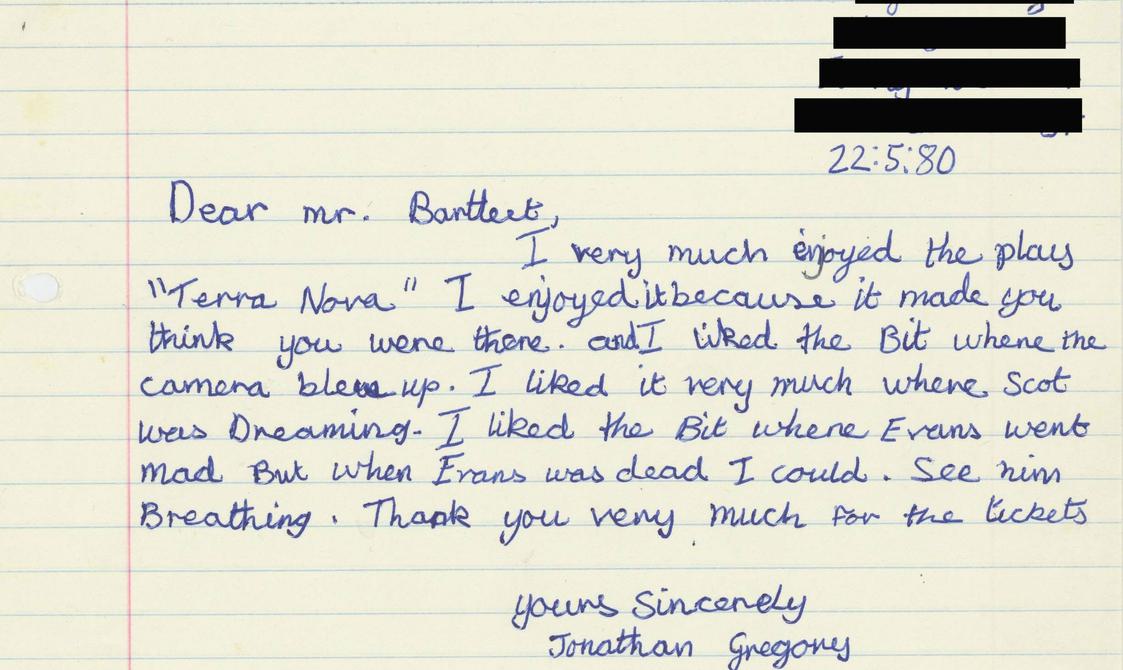 22:5:80
Dear mr. Bartlect,
I very much enjoyed the play
"Terra Nova" I enjoyed it because it made you
think you were there. and I liked the Bit where the
camera blew up. I liked it very much where Scot
was Dreaming. I liked the Bit where Evans went
mad But when Evans was dead I could. See him
Breathing. Thank you very much for the tickets
yours Sincerely
Jonathan Gregory